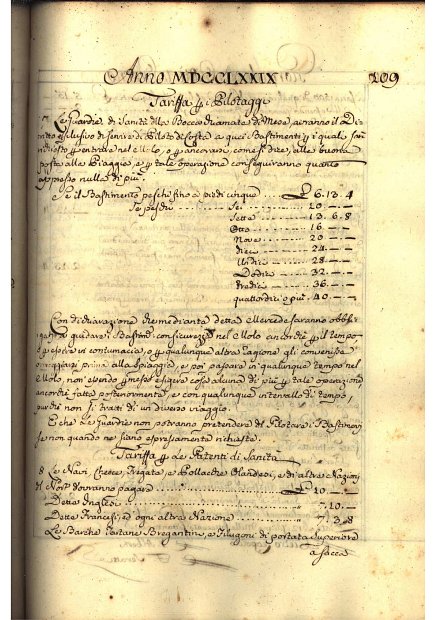 Anno MDCCLXXIX 209
Tariffa p i Pilotaggi
7 Le Guardie di Sanità della Bocca avranno il Di
ritto esclusivo di servire di Piloto di Costa a quei Bastimenti p i quali
p entrare nel Molo, o p ancorarsi, come si dice, alla buona
posta alla Piaggia, e p tale operazione conseguiranno quanto
appresso nulla di più
Se il Bastimento peschi fino a piedi cinque £ 6.13.4
Se peschi Sei 10.—.—
Sette 13.6.8
Otto 16.—.—
Nove 20.—.—
Dieci 24.—.—
Undici 28.—.—
Dodici 32.—.—
Tredici 36.—.—
quattordici o più 40.—.—
Con dichiarazione che mediante detta Mercede saranno obbli
gati a guidare i Bastimti con sicurezza nel Molo ancorchè p il tempo
p essere in contumacia, o p qualunque altra cagione gli convenisse
prima alla Spiaggia, e poi passare in qualunque tempo nel
Molo, non essendo pmesso esigere cosa alcuna di più p tale operazione
ancorchè fatta posteriormente, e con qualunque intervallo di tempo,
purchè non si tratti di un diverso viaggio.
E che Le Guardie non potranno pretendere di Pilotare i Bastimenti
se non quando ne siano espressamente richieste.
Tariffa p Le Patenti di Sanità
8 Le Navi, Fregate, e Pollacche Olandesi, e di altre Nazioni
del Nort dovranno pagare £ 10.—.—
Dette Inglesi 7.10.—
Dette Francesi, ed ogni altra Nazione 7.3.8
Le Barche Tartane Bregantini, e Filugoni di portata Superiore
a Sacca